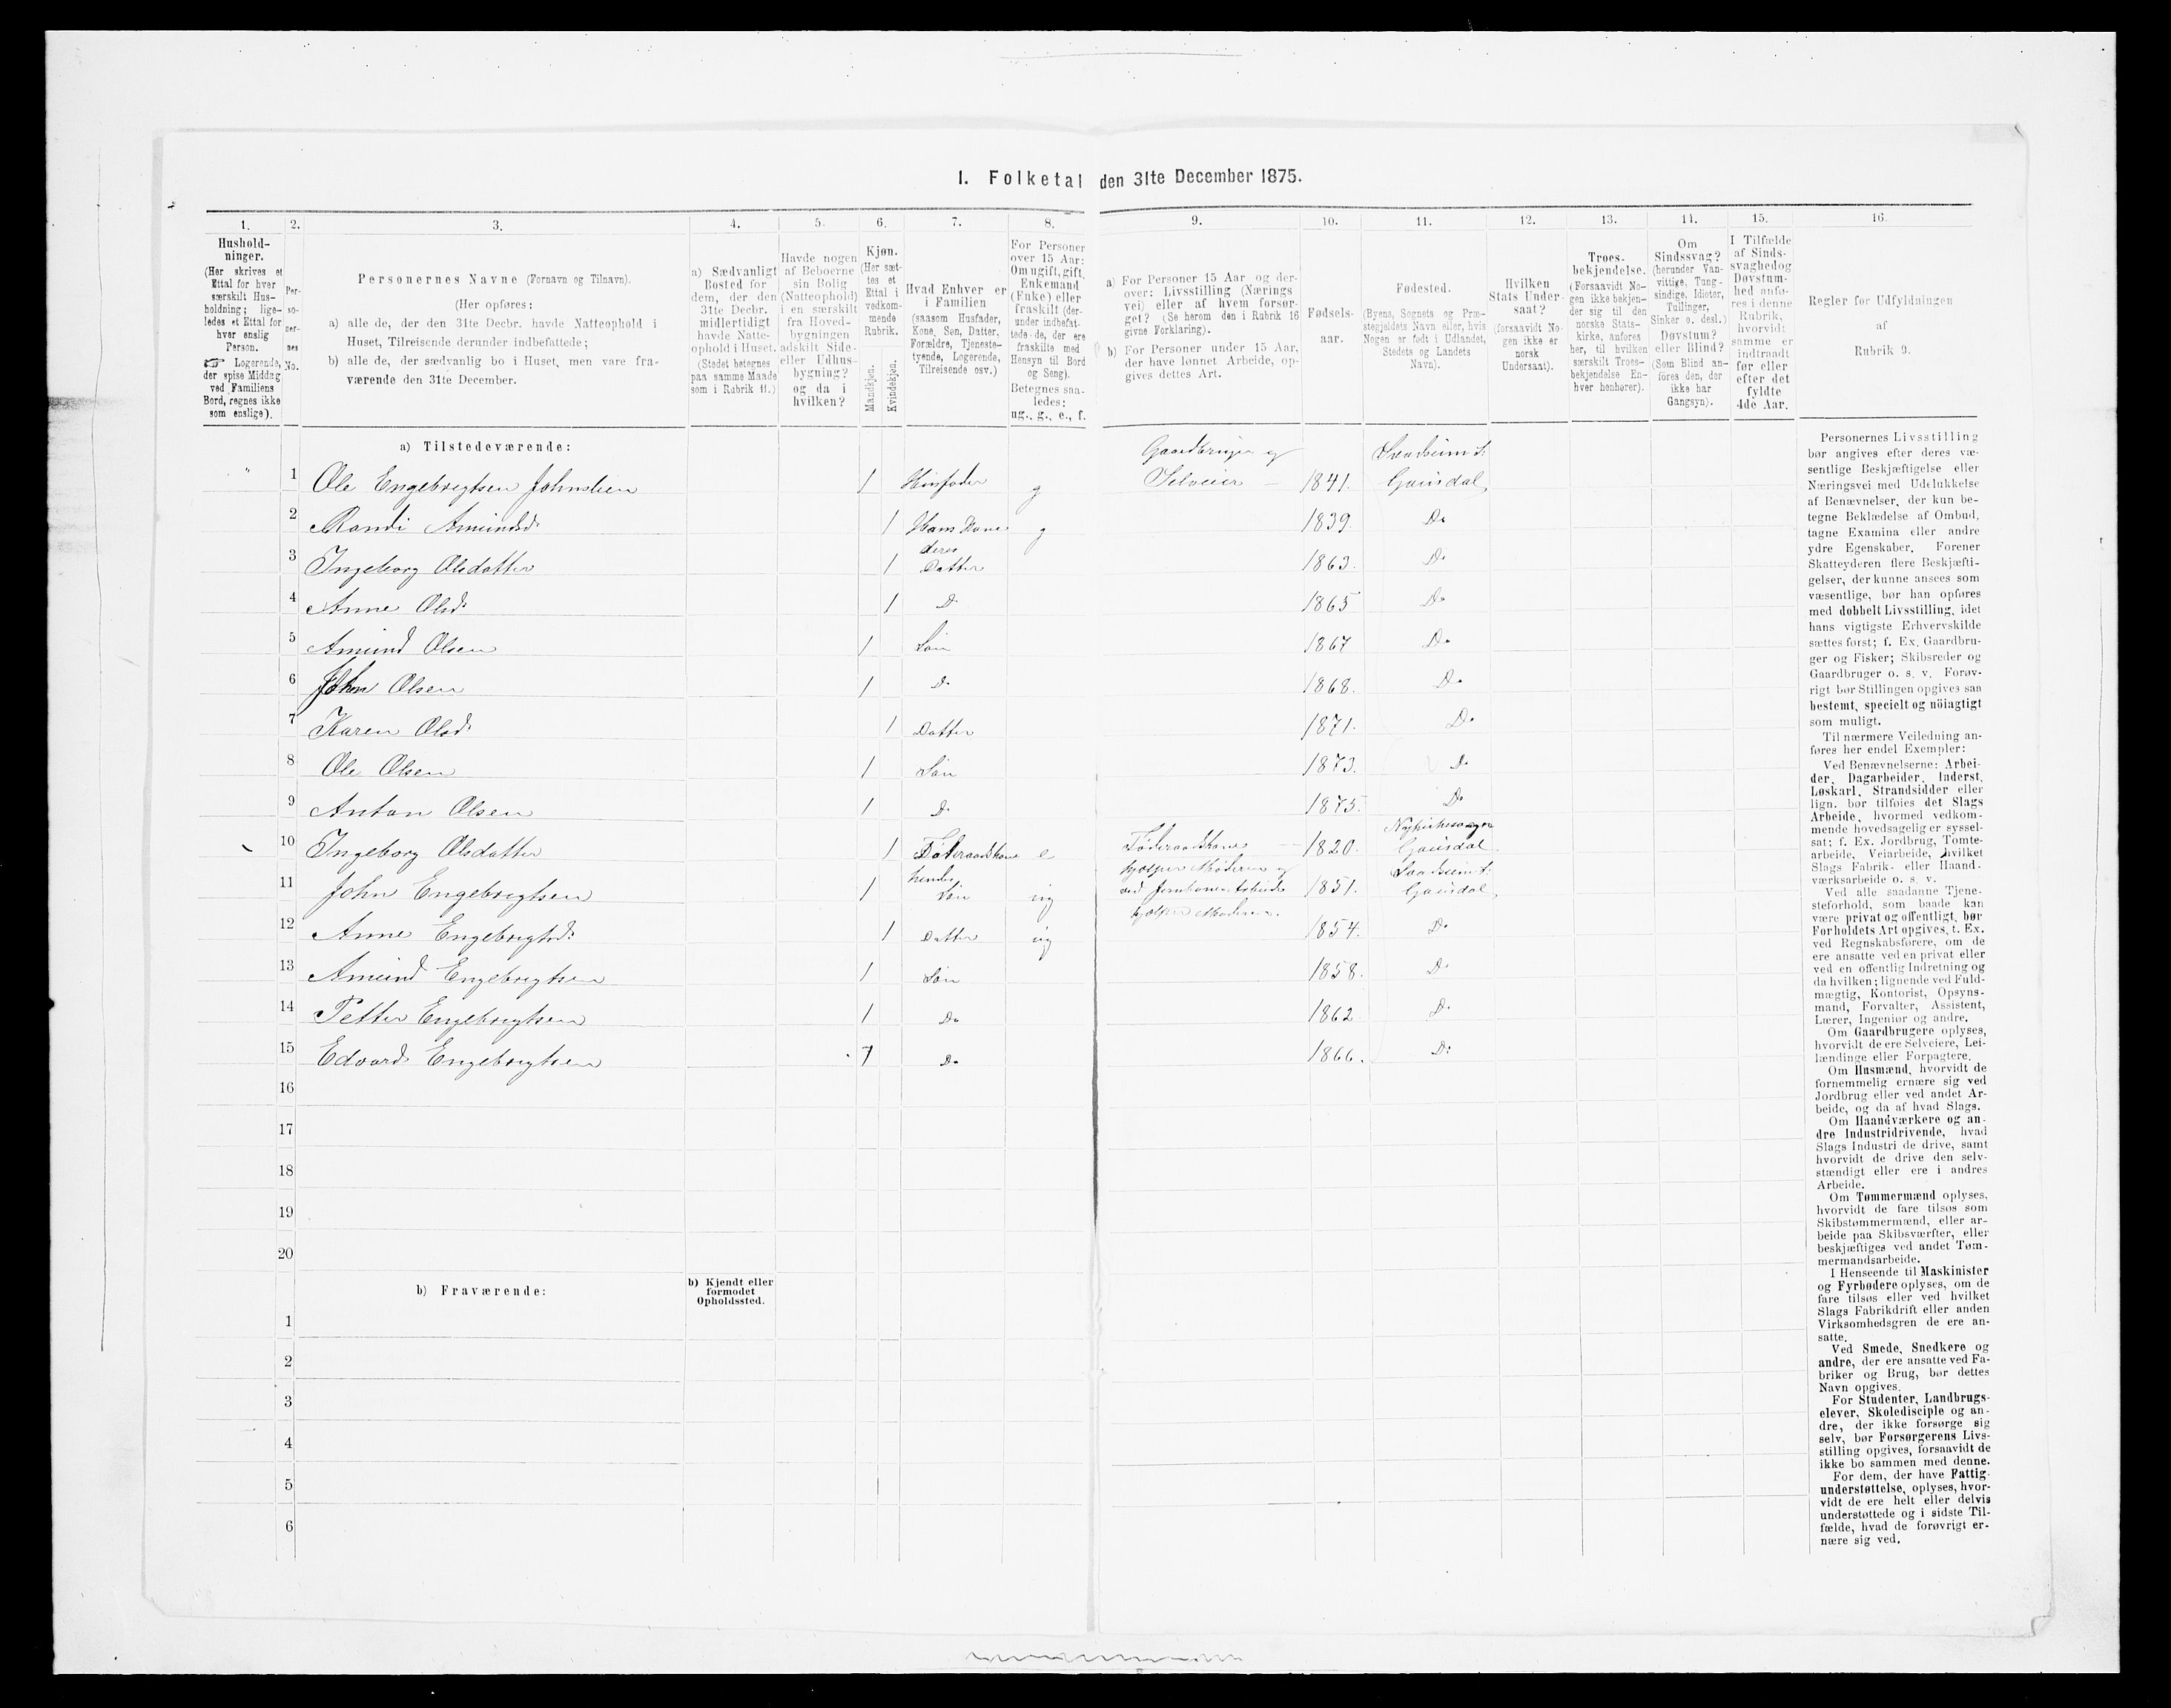 I. Folketal den 31te December 1875.
1. 2. 3. 4. 5. 6. 7. 8. 9. 10. 11. 12. 13. 14. 15. 16.
Hushold-
ninger.
(Her skrives et
Ettal for hver
særskilt Hus-
holdning; lige-
ledes et Ettal for
hver enslig
Person.
☞ Logerende,
der spise Middag
ved Familiens
Bord, regnes ikke
som enslige).
Per-
so-
ner-
nes
No.
Personernes Navne (Fornavn og Tilnavn).
(Her opføres:
a) alle de, der den 31te Decbr. havde Natteophold i
Huset, Tilreisende derunder indbefattede;
b) alle de, der sædvanlig bo i Huset, men vare fra-
værende den 31te December.
a) Sædvanligt
Bosted for
dem, der den
31te Decbr.
midlertidigt
havde Natte-
ophold i Huset.
(Stedet betegnes
paa samme Maade
som i Rubrik 11.)
Havde nogen
af Beboerne
sin Bolig
(Natteophold)
i en særskilt
fra Hoved-
bygningen
adskilt Side-
eller Udhus-
bygning?
og da i
hvilken?
Kjøn.
(Her sæt-
tes et
Ettal i
vedkom-
mende
Rubrik.
Mandkjøn.
Kvindekjøn.
Hvad Enhver er
i Familien
(saasom Husfader,
Kone, Søn, Datter,
Forældre, Tjeneste-
tyende, Logerende,
Tilreisende osv.)
For Personer
over 15 Aar:
Om ugift, gift,
Enkemand
(Enke) eller
fraskilt (der-
under indbefat-
tede de, der ere
fraskilte med
Hensyn til Bord
og Seng).
Betegnes saa-
ledes:
ug., g., e., f.
a) For Personer 15 Aar og der-
over: Livsstilling (Nærings
vei) eller af hvem forsør-
get? (Se herom den i Rubrik 16
givne Forklaring).
b) For Personer under 15 Aar,
der have lønnet Arbeide, op-
gives dettes Art.
Fødsels-
aar.
Fødested.
(Byens, Sognets og Præ-
stegjeldets Navn eller, hvis
Nogen er født i Udlandet,
Stedets og Landets
Navn).
Hvilken
Stats Under-
saat?
(forsaavidt No-
gen ikke er
norsk
Undersaat).
Troes-
bekjendelse.
(Forsaavidt No-
gen ikke bekjen-
der sig til den
norske Stats-
kirke, anføres
her, til hvilken
særskilt Troes-
bekjendelse En-
hver henhører).
Om
Sindssvag?
(herunder Van-
vittige, Tung-
sindige, Idioter,
Tullinger,
Sinker o. desl.)
Døvstum?
eller Blind?
(Som Blind an-
føres den, der
ikke har
Gangsyn).
I Tilfælde
af Sinds-
svaghed og
Døvstum-
hed anfø-
res i denne
Rubrik,
hvorvidt
samme er
indtraadt
før eller
efter det
fyldte
4de Aar.
Regler for Udfyldningen
af
Rubrik 9.
a) Tilstedeværende:
Gaardbruger og
1 Ole Engebrigtsen Johnslien 1 Husfader g Selveier 1841. Gausdal
2 Randi Amundsd. 1 Hans Kone g 1839. Do
deres
3 Ingeborg Olsdatter 1 Datter 1863. Do
4 Anne Olsd. 1 Do 1865 Do
5 Amund Olsen 1 Søn 1867 Do
6 John Olsen 1 Do 1868. Do
7 Karen Olsd. 1 Datter 1871. Do
8 Ole Olsen 1 Søn 1873. Do
9 Anton Olsen 1 Do 1875. Do
10 Ingeborg Olsdatter 1 Føderaadskone e Føderaadskone 1820. Gausdal
hendes hjælper Moderen
11 John Engebrigtsen 1 Søn ug 1851. Gausdal
hjælper Moderen.
12 Anne Engebrigtsd. 1 Datter ug 1854. Do
13 Amund Engebrigtsen 1 Søn 1858. Do
14 Petter Engebrigtsen 1 Do 1862 Do
15 Edvard Engebrigtsen 1 Do 1866. Do
16
17
18
19
20
b) Fraværende:
b) Kjendt eller
formodet
Opholdssted.
1
2
3
4
5
6
Personernes Livsstilling
bør angives efter deres væ-
sentlige Beskjæftigelse eller
Næringsvei med Udelukkelse
af Benævnelser, der kun be-
tegne Beklædelse af Ombud,
tagne Examina eller andre
ydre Egenskaber. Forener
Skatteyderen flere Beskjæfti-
gelser, der kunne ansees som
væsentlige, bør han opføres
med dobbelt Livsstilling, idet
hans vigtigste Erhvervskilde
sættes først; f. Ex. Gaardbru-
ger og Fisker; Skibsreder og
Gaardbruger o. s. v. Forøv-
rigt bør Stillingen opgives saa
bestemt, specielt og nöiagtigt
som muligt.
Til nærmere Veiledning an-
føres her endel Exempler:
Ved Benævnelserne: Arbei-
der, Dagarbeider, Inderst,
Løskarl, Strandsidder eller
lign. bør tilføies det Slags
Arbeide, hvormed vedkom-
mende hovedsagelig er syssel-
sat; f. Ex. Jordbrug, Tomte-
arbeide, Veiarbeide, hvilket
Slags Fabrik- eller Haand-
værksarbeide o. s. v.
Ved alle saadanne Tjene-
steforhold, som baade kan
være privat og offentligt, bør
Forholdets Art opgives, t. Ex.
ved Regnskabsførere, om de
ere ansatte ved en privat eller
ved en offentlig Indretning og
da hvilken; lignende ved Fuld-
mægtig, Kontorist, Opsyns-
mand, Forvalter, Assistent,
Lærer, Ingeniør og andre.
Om Gaardbrugere oplyses,
hvorvidt de ere Selveiere, Lei-
lændinge eller Forpagtere.
Om Husmænd, hvorvidt de
fornemmelig ernære sig ved
Jordbrug eller ved andet Ar-
beide, og da af hvad Slags.
Om Haandværkere og an-
dre Industridrivende, hvad
Slags Industri de drive, samt
hvorvidt de drive den selv-
stændigt eller ere i andres
Arbeide.
Om Tømmermænd oplyses,
hvorvidt de fare tilsøs som
Skibstømmermænd, eller ar-
beide paa Skibsværfter, eller
beskjæftiges ved andet Tøm-
mermandsarbeide.
I Henseende til Maskinister
og Fyrbødere oplyses, om de
fare tilsøs eller ved hvilket
Slags Fabrikdrift eller anden
Virksomhedsgren de ere an-
satte.
Ved Smede, Snedkere og
andre, der ere ansatte ved Fa-
briker og Brug, bør dettes
Navn opgives.
For Studenter, Landbrugs-
elever, Skoledisciple og an-
dre, der ikke forsørge sig
selv, bør Forsørgerens Livs-
stilling opgives, forsaavidt de
ikke bo sammen med denne.
For dem, der have Fattig-
understøttelse, oplyses, hvor-
vidt de ere helt eller delvis
understøttede og i sidste Til-
fælde, hvad de forøvrigt er-
nære sig ved.